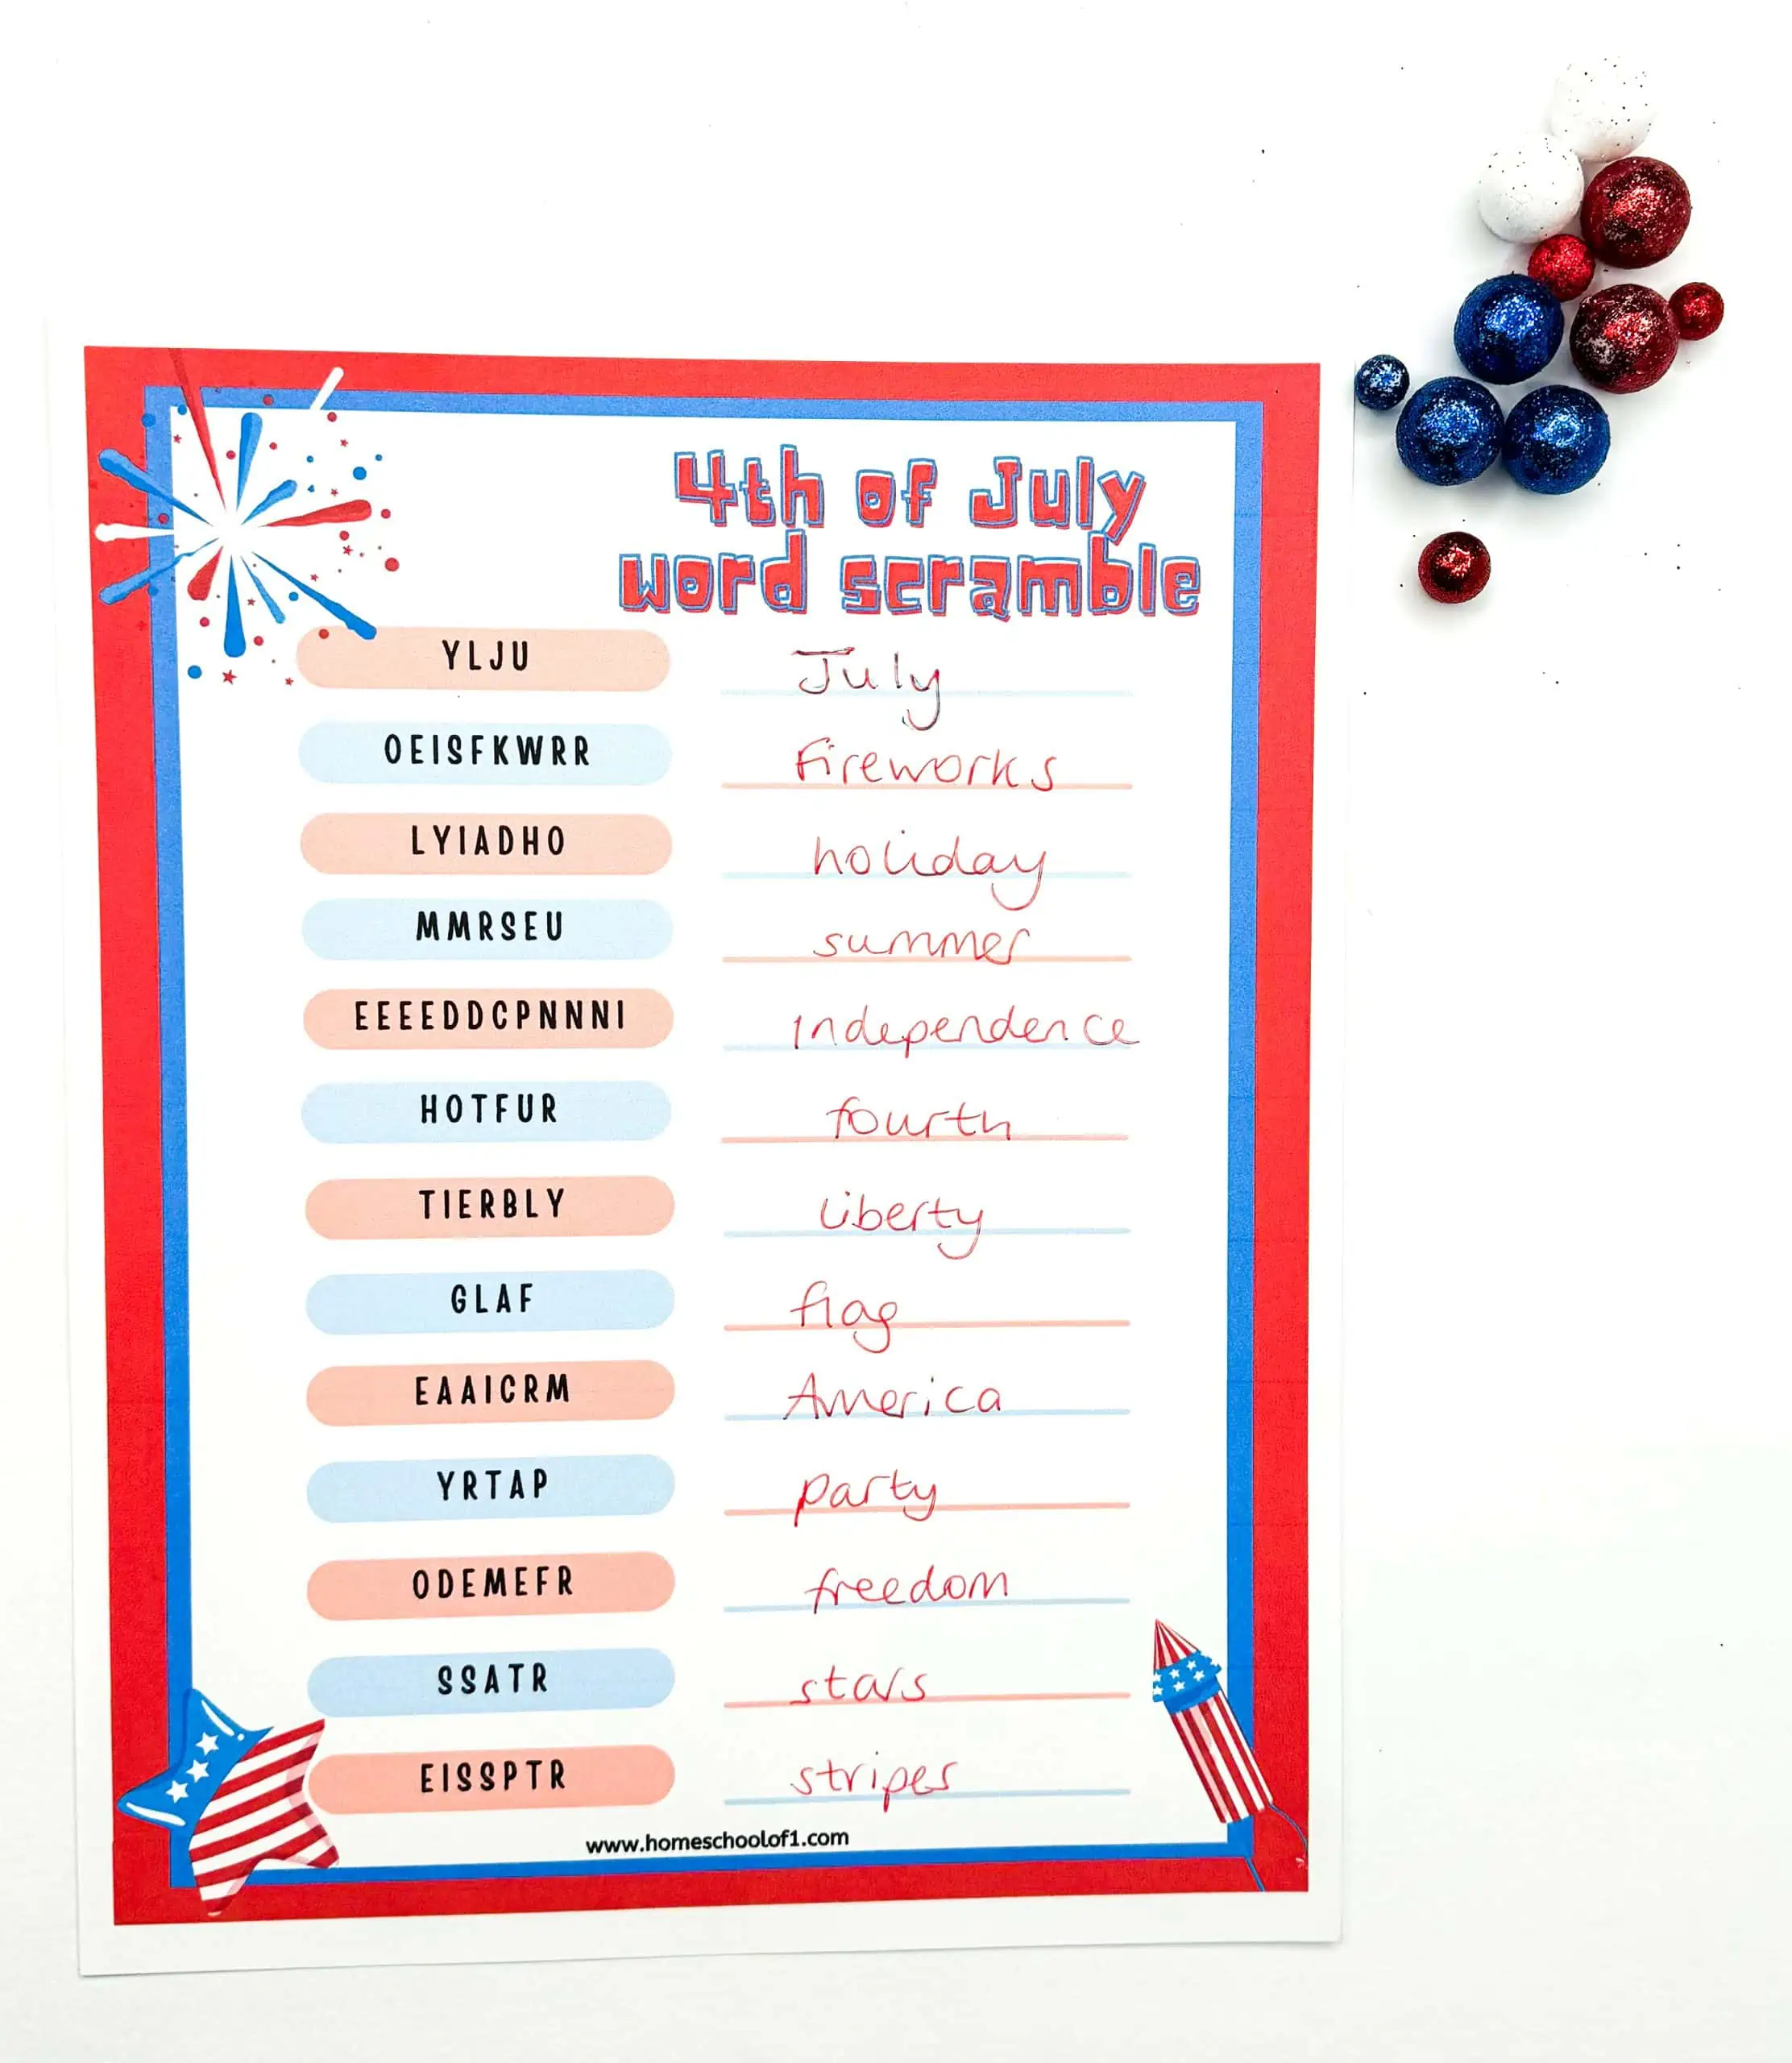 4th of July
word scramble
YLJU July
OEISFKWRR Fireworks
LYIADHO holiday
MMRSEU summer
EEEEDDCPNNNI Independence
HOTFUR fourth
TIERBLY liberty
GLAF flag
EAAICRM America
YRTAP party
ODEMEFR freedom
SSATR stars
EISSPTR stripes
www.homeschoolof1.com